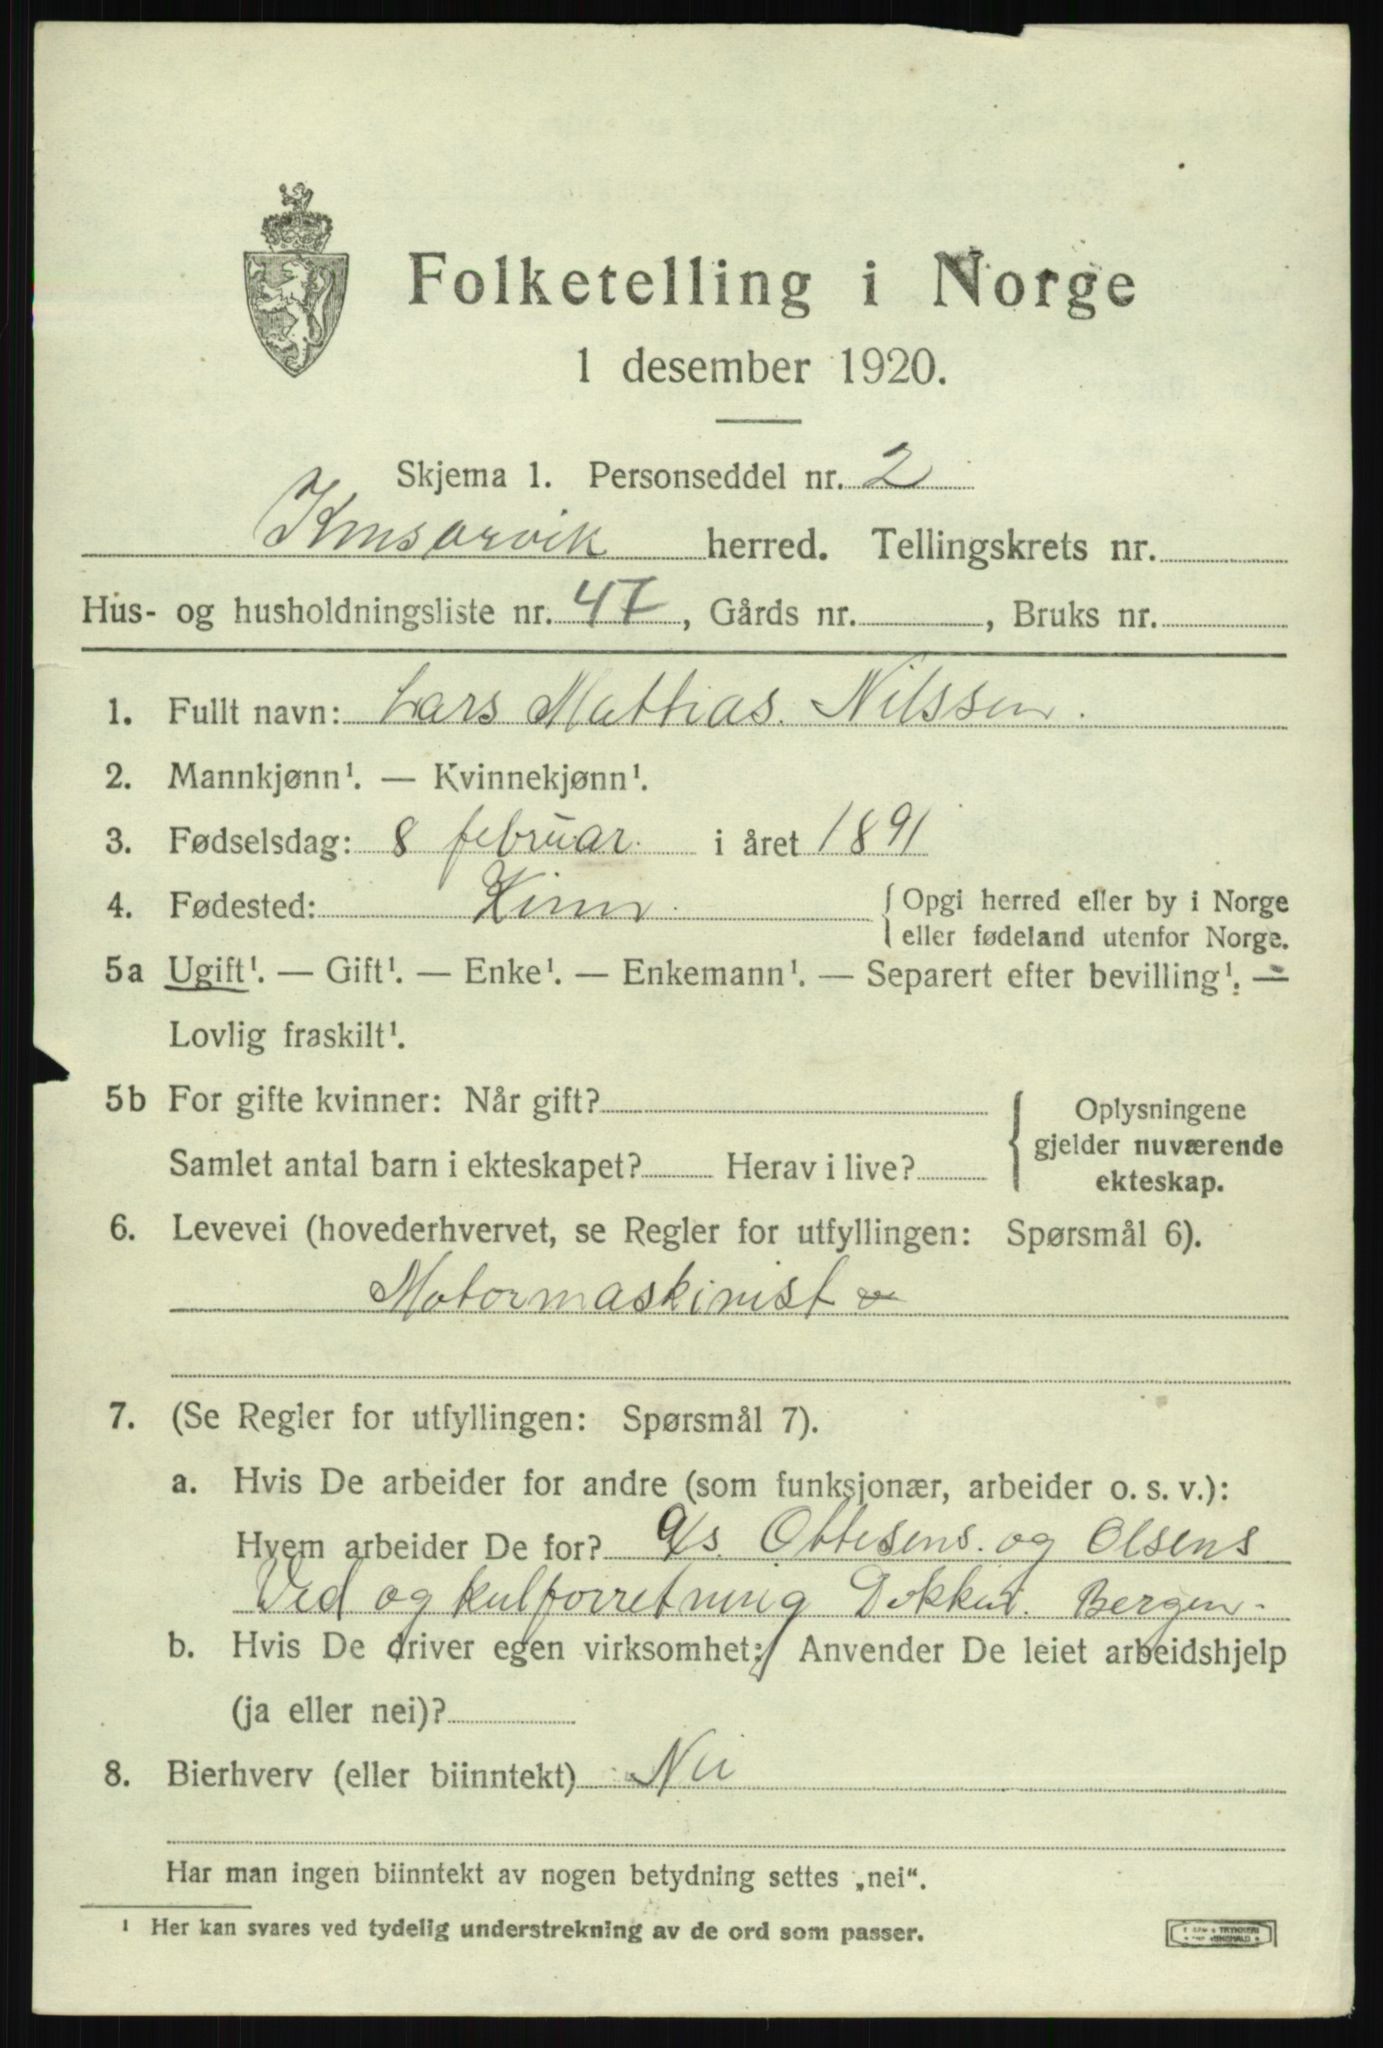 Folketelling i Norge
1 desember 1920.
Skjema 1. Personseddel nr. 2
Kinsarvik herred. Tellingskrets nr.
Hus- og husholdningsliste nr. 47, Gårds nr. , Bruks nr.
1. Fullt navn: Lars Mathias. Nilssen.
2. Mannkjønn¹. — Kvinnekjønn¹.
3. Fødselsdag: 8 februar. i året 1891
4. Fødested: Kinn. { Opgi herred eller by i Norge
eller fødeland utenfor Norge.
5a Ugift¹. — Gift¹. — Enke¹. — Enkemann¹. — Separert efter bevilling¹. —
Lovlig fraskilt¹.
5b For gifte kvinner: Når gift? { Oplysningene
gjelder nuværende
Samlet antal barn i ekteskapet? Herav i live? ekteskap.
6. Levevei (hovederhvervet, se Regler for utfyllingen: Spørsmål 6).
Motormaskinist
7. (Se Regler for utfyllingen: Spørsmål 7).
a. Hvis De arbeider for andre (som funksjonær, arbeider o. s. v.):
Hvem arbeider De for? a/s. Ottesens. og Olsens
Ved og kulforretning Dokken. Bergen.
b. Hvis De driver egen virksomhet: Anvender De leiet arbeidshjelp
(ja eller nei)?
8. Bierhverv (eller biinntekt) Nei
Har man ingen biinntekt av nogen betydning settes „nei“.
¹ Her kan svares ved tydelig understrekning av de ord som passer.